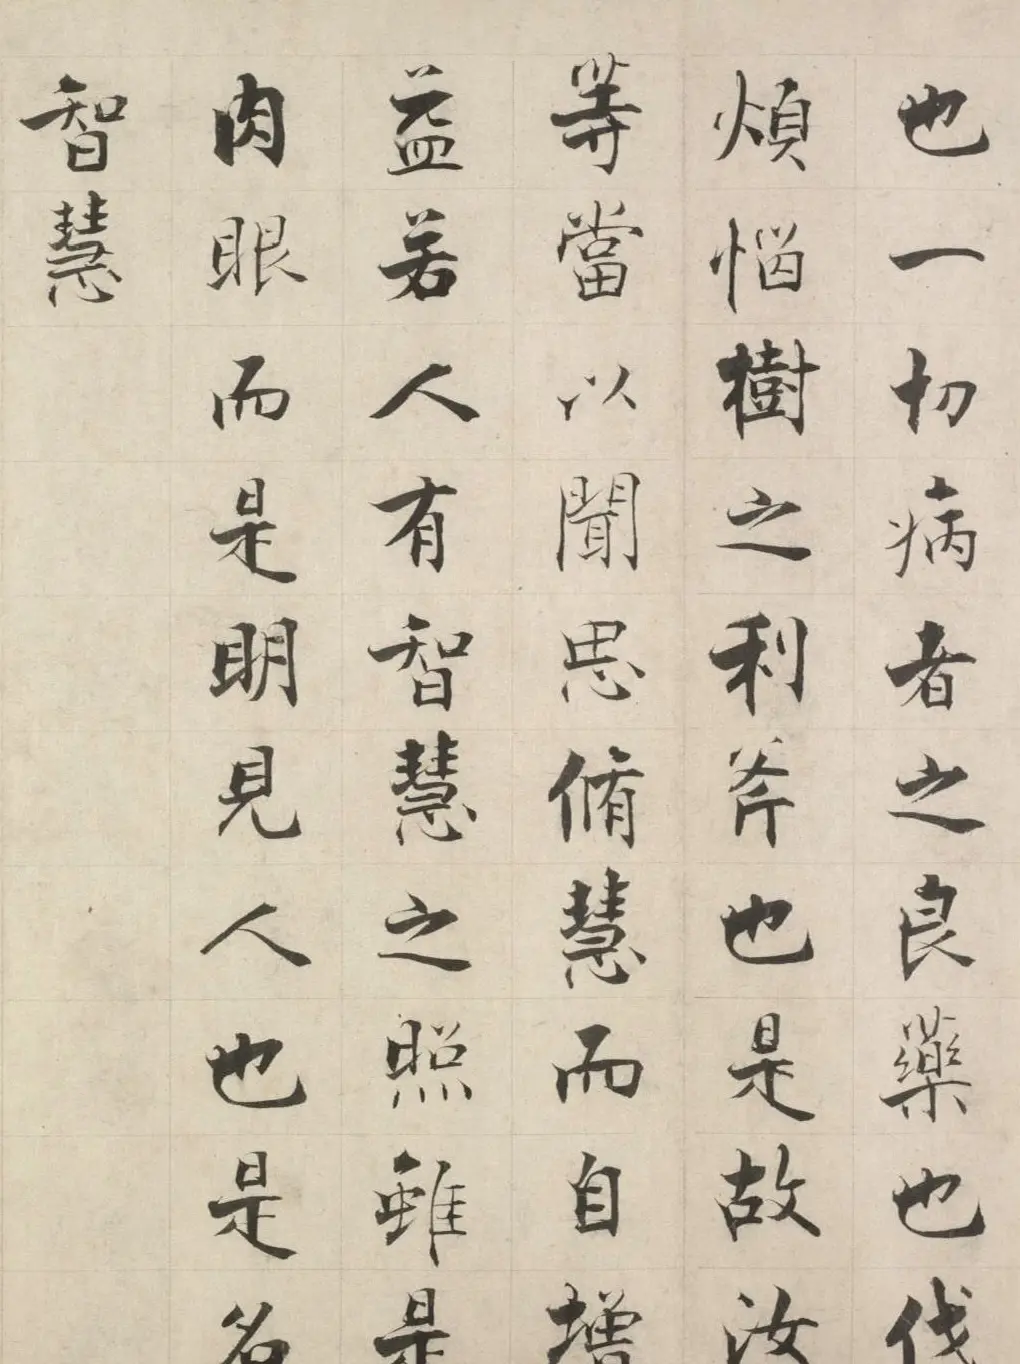 也一切病者之良藥也伐
煩惱樹之利斧也是故汝
等當以聞思脩慧而自增
益若人有智慧之照雖是
肉眼而是明見人也是名
智慧